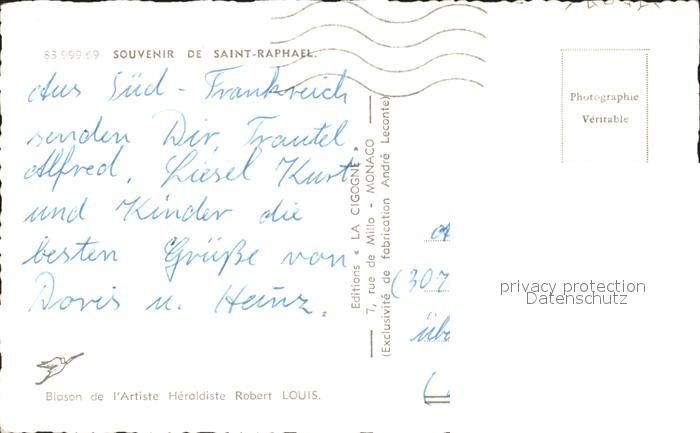 83.999.69 SOUVENIR DE SAINT-RAPHAEL.
Aus Süd - Frankreich
senden Dir, Trautel
Alfred, Liesel Kurt
und Kinder die
besten Grüße von
Doris u. Heinz.
Blason de l'Artiste Héraldiste Robert LOUIS.
Editions « LA CIGOGNE »
7, rue de Millo - MONACO
(Exclusivité de fabrication André Leconte)
Photographie
Véritable
(307
privacy protection
Datenschutz